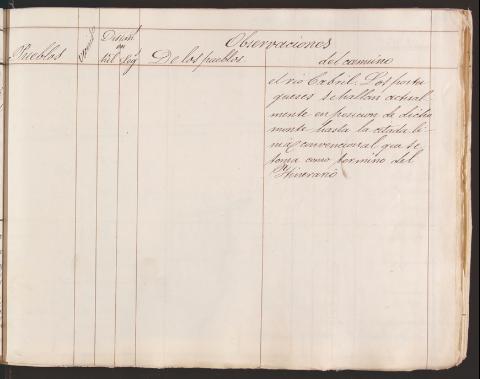 Observaciones
Pueblos
De los pueblos
del camino
el rio Cabril. Los portu
gueses se hallan actual
mente en posicion de dicho
monte hasta la citada lí
nea convencional que se
toma como termino del
Itinerario